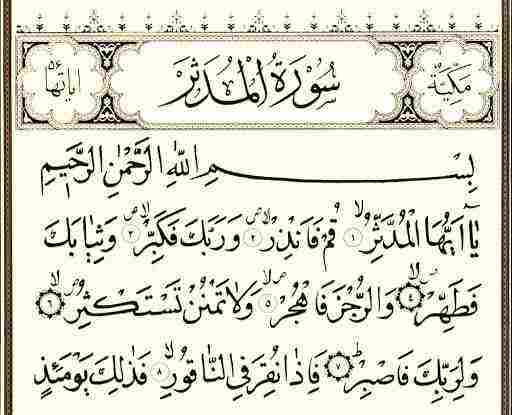 مكية سورة المدثر اياتها ٥٦
بِسْمِ اللّٰهِ الرَّحْمٰنِ الرَّحٖيمِ
يَٓا اَيُّهَا الْمُدَّثِّرُۙ ﴿١﴾ قُمْ فَاَنْذِرْۙ ﴿٢﴾ وَرَبَّكَ فَكَبِّرْۙ ﴿٣﴾ وَثِيَابَكَ
فَطَهِّرْۙ ﴿٤﴾ وَالرُّجْزَ فَاهْجُرْۙ ﴿٥﴾ وَلَا تَمْنُنْ تَسْتَكْثِرُۙ ﴿٦﴾
وَلِرَبِّكَ فَاصْبِرْۜ ﴿٧﴾ فَاِذَا نُقِرَ فِي النَّاقُورِۙ ﴿٨﴾ فَذٰلِكَ يَوْمَئِذٍ